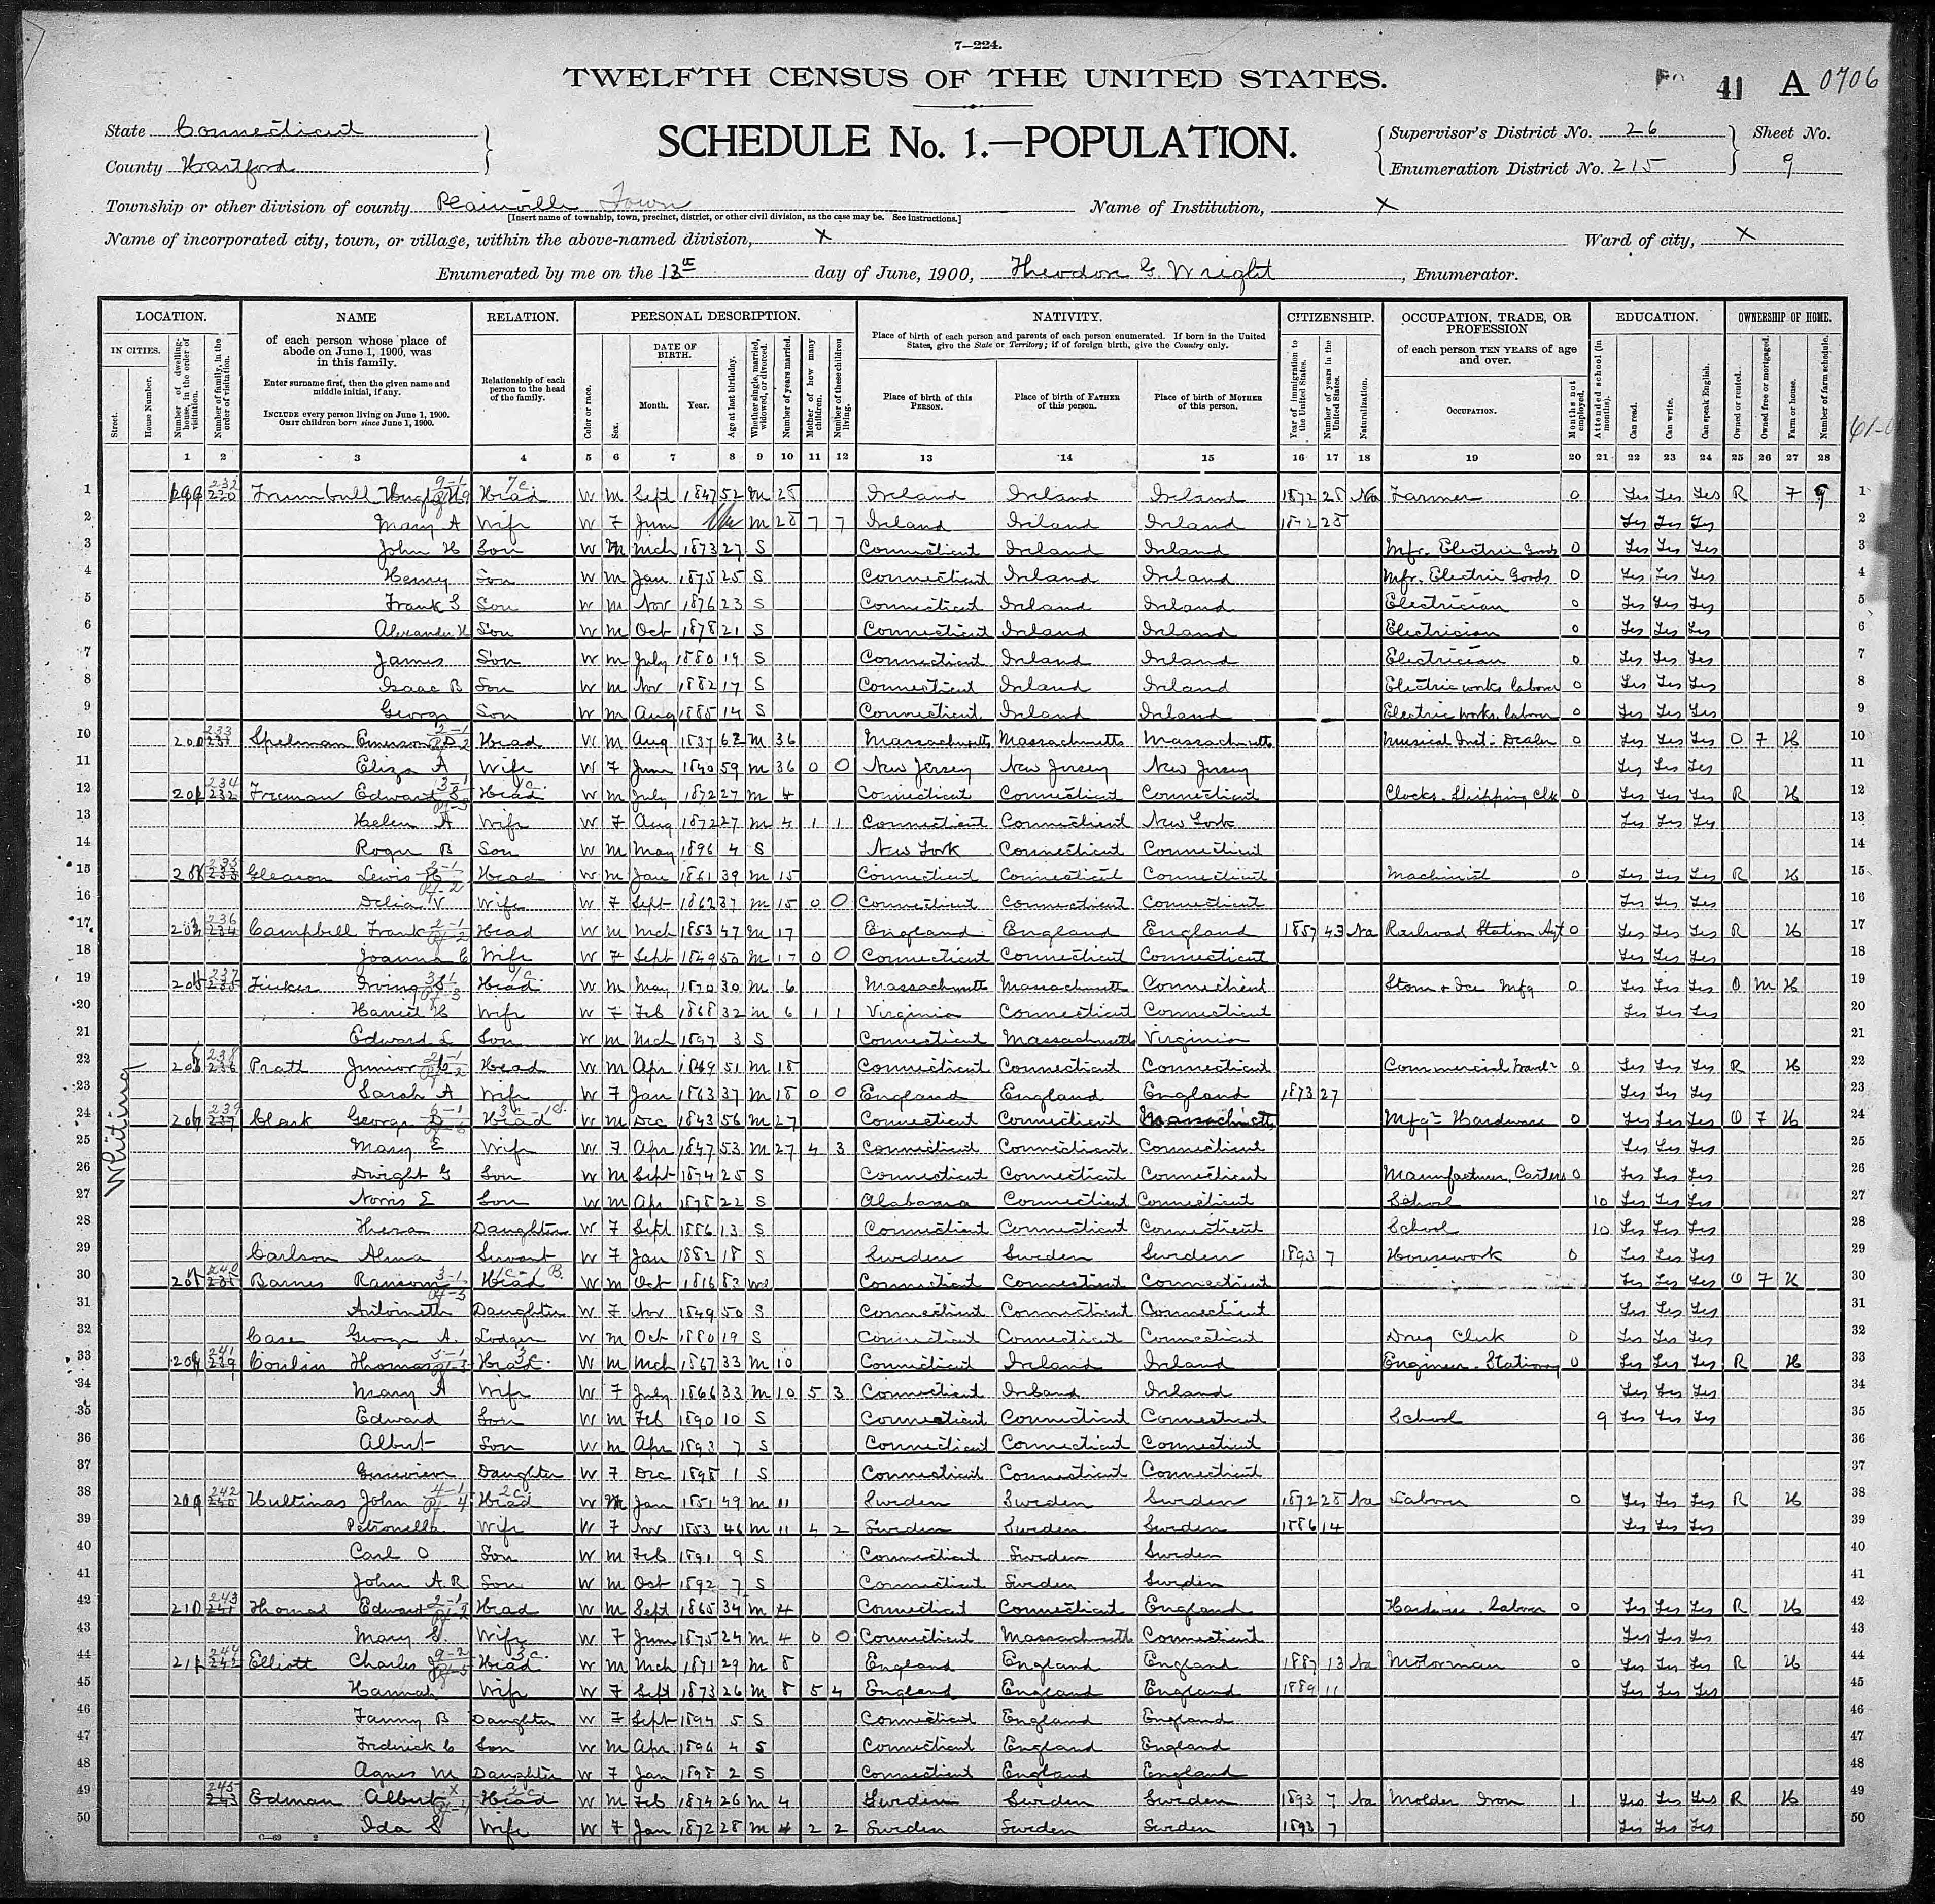 7—224.
TWELFTH CENSUS OF THE UNITED STATES.
41 A 0706
State Connecticut
County Hartford
SCHEDULE No. 1.—POPULATION.
Supervisor's District No. 26
Enumeration District No. 215
Sheet No.
9
Township or other division of county Plainville Town
[Insert name of township, town, precinct, district, or other civil division, as the case may be. See instructions.]
Name of Institution, X
Name of incorporated city, town, or village, within the above-named division, X
Ward of city, X
Enumerated by me on the 13th day of June, 1900, Theodore G. Wright, Enumerator.
LOCATION. NAME RELATION. PERSONAL DESCRIPTION. NATIVITY. CITIZENSHIP. OCCUPATION, TRADE, OR PROFESSION EDUCATION. OWNERSHIP OF HOME.
IN CITIES.
Street.
House Number.
Number of dwelling-house, in the order of visitation.
Number of family, in the order of visitation.
of each person whose place of abode on June 1, 1900, was in this family.
Enter surname first, then the given name and middle initial, if any.
INCLUDE every person living on June 1, 1900.
OMIT children born since June 1, 1900.
Relationship of each person to the head of the family.
Color or race.
Sex.
DATE OF BIRTH.
Month. Year.
Age at last birthday.
Whether single, married, widowed, or divorced.
Number of years married.
Mother of how many children.
Number of these children living.
Place of birth of each person and parents of each person enumerated. If born in the United States, give the State or Territory; if of foreign birth, give the Country only.
Place of birth of this PERSON.
Place of birth of FATHER of this person.
Place of birth of MOTHER of this person.
Year of immigration to the United States.
Number of years in the United States.
Naturalization.
of each person TEN YEARS of age and over.
OCCUPATION.
Months not employed.
Attended school (in months).
Can read.
Can write.
Can speak English.
Owned or rented.
Owned free or mortgaged.
Farm or house.
Number of farm schedule.
1 2 3 4 5 6 7 8 9 10 11 12 13 14 15 16 17 18 19 20 21 22 23 24 25 26 27 28
1 199 232 Trumbull Hugh Head W M Sept 1847 52 M 28 Ireland Ireland Ireland 1872 28 Na Farmer 0 Yes Yes Yes R F 9 1
2 Mary A Wife W F June M 28 7 7 Ireland Ireland Ireland 1872 28 Yes Yes Yes 2
3 John H Son W M Mch 1873 27 S Connecticut Ireland Ireland Mfr. Electric Goods 0 Yes Yes Yes 3
4 Henry Son W M Jan 1875 25 S Connecticut Ireland Ireland Mfr. Electric Goods 0 Yes Yes Yes 4
5 Frank S Son W M Nov 1876 23 S Connecticut Ireland Ireland Electrician 0 Yes Yes Yes 5
6 Alexander H Son W M Oct 1878 21 S Connecticut Ireland Ireland Electrician 0 Yes Yes Yes 6
7 James Son W M July 1880 19 S Connecticut Ireland Ireland Electrician 0 Yes Yes Yes 7
8 Isaac B Son W M Nov 1882 17 S Connecticut Ireland Ireland Electric works laborer 0 Yes Yes Yes 8
9 George Son W M Aug 1885 14 S Connecticut Ireland Ireland Electric works laborer 0 Yes Yes Yes 9
10 200 233 Spelman Emerson D Head W M Aug 1837 62 M 36 Massachusetts Massachusetts Massachusetts Musical Inst. Dealer 0 Yes Yes Yes O F H 10
11 Eliza A Wife W F June 1840 59 M 36 0 0 New Jersey New Jersey New Jersey Yes Yes Yes 11
12 201 234 Freeman Edward S Head W M July 1872 27 M 4 Connecticut Connecticut Connecticut Clocks. Shipping Clk 0 Yes Yes Yes R H 12
13 Helen A Wife W F Aug 1872 27 M 4 1 1 Connecticut Connecticut New York Yes Yes Yes 13
14 Roger B Son W M May 1896 4 S New York Connecticut Connecticut 14
15 235 Gleason Lewis Head W M Jan 1861 39 M 15 Connecticut Connecticut Connecticut Machinist 0 Yes Yes Yes R H 15
16 Delia V Wife W F Sept 1862 37 M 15 0 0 Connecticut Connecticut Connecticut Yes Yes Yes 16
17 236 Campbell Frank Head W M Mch 1853 47 M 17 England England England 1857 43 Na Railroad Station Agt 0 Yes Yes Yes R H 17
18 Joanna C Wife W F Sept 1849 50 M 17 0 0 Connecticut Connecticut Connecticut Yes Yes Yes 18
19 237 Tinker Irving Head W M May 1870 30 M 6 Massachusetts Massachusetts Connecticut Mfg 0 Yes Yes Yes O M H 19
20 Harriet H Wife W F Feb 1868 32 M 6 1 1 Virginia Connecticut Connecticut Yes Yes Yes 20
21 Edward L Son W M Mch 1897 3 S Connecticut Massachusetts Virginia 21
Whiting
22 238 Pratt Junior Head W M Apr 1849 51 M 18 Connecticut Connecticut Connecticut Commercial Travlr 0 Yes Yes Yes R H 22
23 Sarah A Wife W F Jan 1863 37 M 18 0 0 England England England 1873 27 Yes Yes Yes 23
24 239 Clark George D Head W M Dec 1843 56 M 27 Connecticut Connecticut Massachusetts Mfgr Hardware 0 Yes Yes Yes O F H 24
25 Mary E Wife W F Apr 1847 53 M 27 4 3 Connecticut Connecticut Connecticut Yes Yes Yes 25
26 Dwight G Son W M Sept 1874 25 S Connecticut Connecticut Connecticut Manufacturer, 0 Yes Yes Yes 26
27 Norris E Son W M Apr 1878 22 S Alabama Connecticut Connecticut School 10 Yes Yes Yes 27
28 Hera Daughter W F Sept 1886 13 S Connecticut Connecticut Connecticut School 10 Yes Yes Yes 28
29 Carlson Alma Servant W F Jan 1882 18 S Sweden Sweden Sweden 1893 7 Housework 0 Yes Yes Yes 29
30 240 Barnes Ransom Head W M Oct 1816 83 Wd Connecticut Connecticut Connecticut Yes Yes Yes O F H 30
31 Antoinette Daughter W F Nov 1849 50 S Connecticut Connecticut Connecticut Yes Yes Yes 31
32 Case George A. Lodger W M Oct 1880 19 S Connecticut Connecticut Connecticut Drug Clerk 0 Yes Yes Yes 32
33 241 Conlin Thomas Head W M Mch 1867 33 M 10 Connecticut Ireland Ireland Engineer. Stationary 0 Yes Yes Yes R H 33
34 Mary A Wife W F July 1866 33 M 10 5 3 Connecticut Ireland Ireland Yes Yes Yes 34
35 Edward Son W M Feb 1890 10 S Connecticut Connecticut Connecticut School 9 Yes Yes Yes 35
36 Albert Son W M Apr 1893 7 S Connecticut Connecticut Connecticut 36
37 Genevieve Daughter W F Dec 1898 1 S Connecticut Connecticut Connecticut 37
38 209 242 Hultinas John Head W M Jan 1851 49 M 11 Sweden Sweden Sweden 1872 28 Na Laborer 0 Yes Yes Yes R H 38
39 Petronella Wife W F Nov 1853 46 M 11 4 2 Sweden Sweden Sweden 1886 14 Yes Yes Yes 39
40 Carl O Son W M Feb 1891 9 S Connecticut Sweden Sweden 40
41 John A. R. Son W M Oct 1892 7 S Connecticut Sweden Sweden 41
42 210 243 Thomas Edward Head W M Sept 1865 34 M 4 Connecticut Connecticut England Hardware. laborer 0 Yes Yes Yes R H 42
43 Mary S. Wife W F June 1875 24 M 4 0 0 Connecticut Massachusetts Connecticut Yes Yes Yes 43
44 211 244 Elliott Charles J Head W M Mch 1871 29 M 8 England England England 1887 13 Na Motorman 0 Yes Yes Yes R H 44
45 Hannah Wife W F Sept 1873 26 M 8 5 4 England England England 1889 11 Yes Yes Yes 45
46 Fanny B Daughter W F Sept 1894 5 S Connecticut England England 46
47 Frederick C Son W M Apr 1896 4 S Connecticut England England 47
48 Agnes M Daughter W F Jan 1898 2 S Connecticut England England 48
49 245 Edman Albert Head W M Feb 1874 26 M 4 Sweden Sweden Sweden 1893 7 Na Molder Iron 1 Yes Yes Yes R H 49
50 Ida S Wife W F Jan 1872 28 M 4 2 2 Sweden Sweden Sweden 1893 7 Yes Yes Yes 50
C—69 2